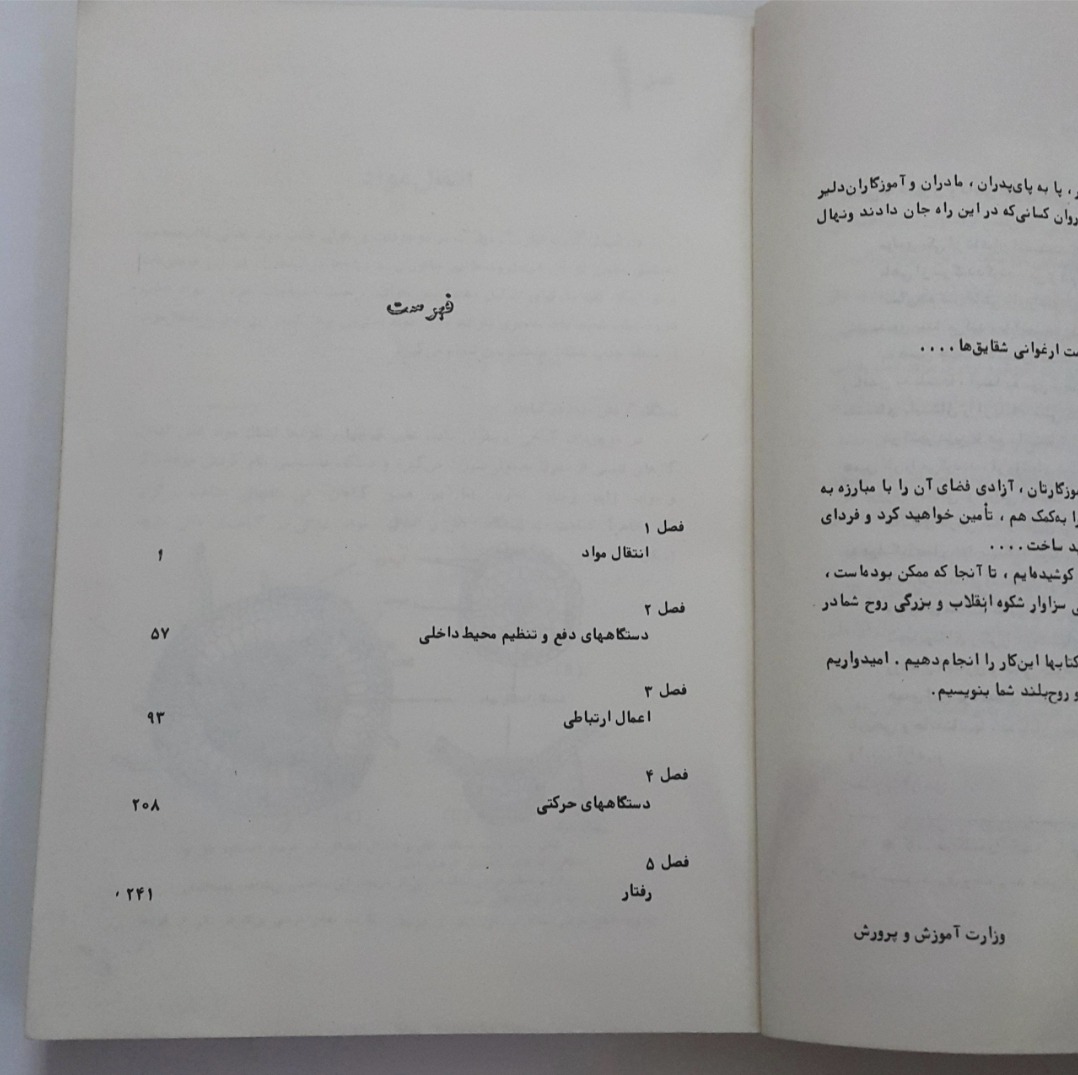 پا به پای‌پدران ، مادران و آموزگاران‌دلیر
روان کسانی‌که در این راه جان دادند ونهال
ارغوانی شقایق‌ها ....
آزادی فضای آن را با مبارزه به
به‌کمک هم ، تأمین خواهید کرد و فردای
ساخت ....
کوشیده‌ایم ، تا آنجا که ممکن بوده‌است ،
سزاوار شکوه انقلاب و بزرگی روح شمادر
کتابها این‌کار را انجام‌دهیم . امیدواریم
و روح‌بلند شما بنویسیم.
وزارت آموزش و پرورش
فهرست
فصل ۱
انتقال مواد ۱
فصل ۲
دستگاههای دفع و تنظیم محیط داخلی ۵۷
فصل ۳
اعمال ارتباطی ۹۳
فصل ۴
دستگاههای حرکتی ۲۰۸
فصل ۵
رفتار ۲۴۱